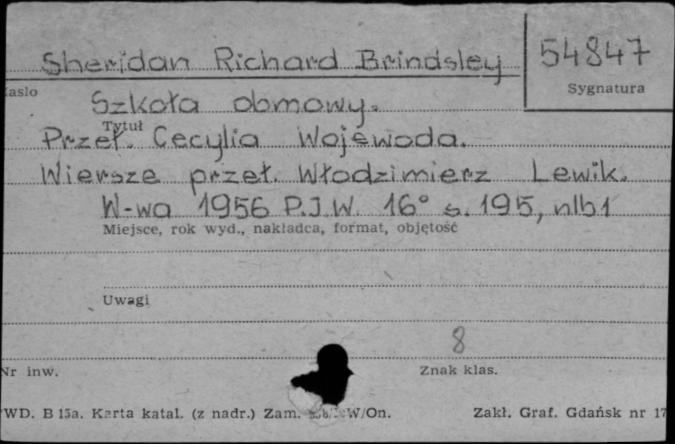 Sheridan Richard Brindsley
54847
Sygnatura
asło
Szkoła obmowy.
Tytuł
Przeł. Cecylia Wojewoda.
Wiersze przeł. Włodzimierz Lewik.
W-wa 1956 P.I.W. 16° s. 195, nlb1
Miejsce, rok wyd., nakładca, format, objętość
Uwagi
8
Nr inw.
Znak klas.
WD. B 15a. Karta katal. (z nadr.) Zam. W/On.
Zakł. Graf. Gdańsk nr 17